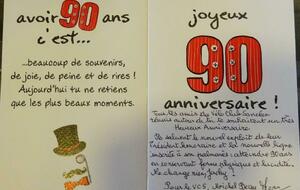 avoir 90 ans
c'est...
...beaucoup de souvenirs,
de joie, de peine et de rires !
Aujourd'hui tu ne retiens
que les plus beaux moments.
joyeux
90
anniversaire !
Tous les amis du Vélo Club
réunis autour de toi te souhaitent un très
Heureux Anniversaire.
Ils saluent le nouvel exploit de leur
Président honoraire et la nouvelle ligne
inscrite à son palmarès : atteindre 90 ans
en conservant forme physique et
Ne change rien,
Pour le VCS, Michel